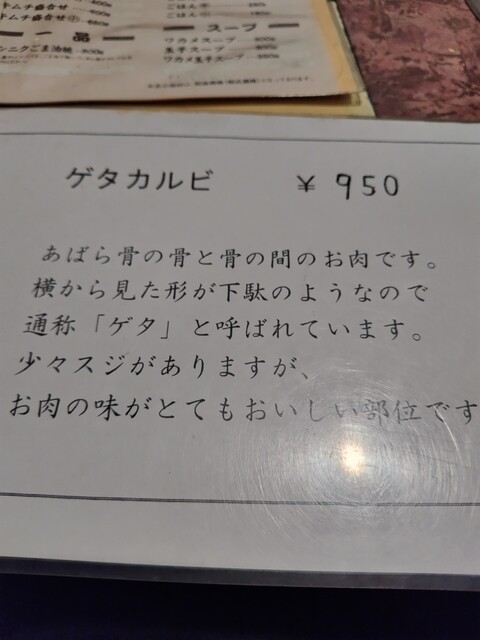 キムチ盛合せ 600e
ごはん㊥ 250e
キムチ盛合せ㋑
ごはん
一品
スープ
ニンニクごま油焼 600e
ワカメスープ
玉子スープ
ワカメ玉子スープ
ゲタカルビ ￥950
あばら骨の骨と骨の間のお肉です。
横から見た形が下駄のようなので
通称「ゲタ」と呼ばれています。
少々スジがありますが、
お肉の味がとてもおいしい部位です